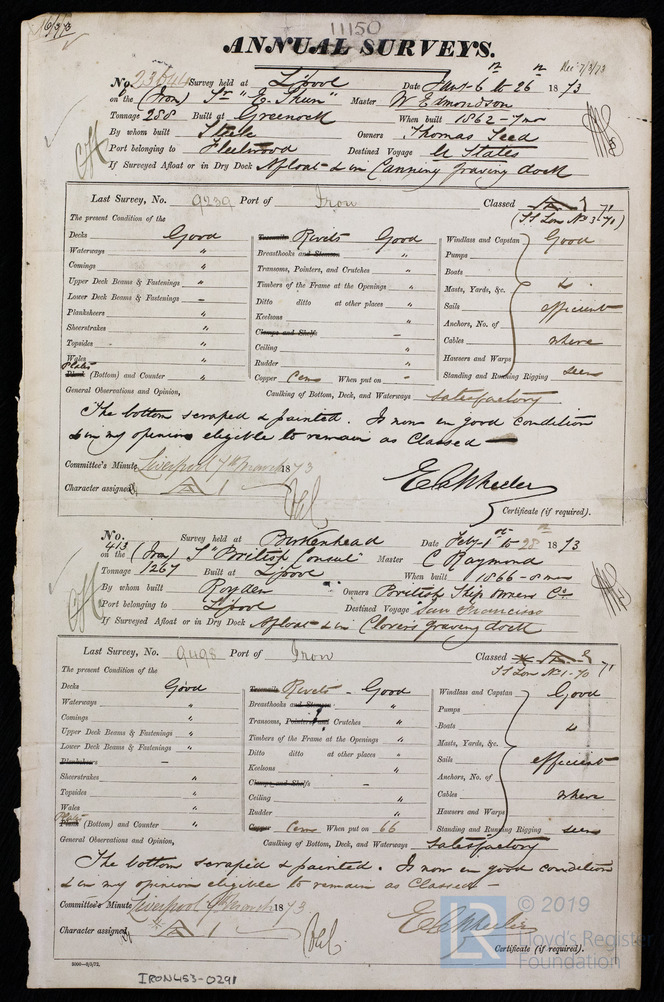 16/3/73
11150
ANNUAL SURVEYS.
Rec 7/3/73
No. 23644 Survey held at L'pool Date Jany 6 to 26 1873
on the (Iron) Sr "E. Shun" Master W Edmondson
Tonnage 288 Built at Greenock When built 1862-7mo
By whom built Steele Owners Thomas Seed
Port belonging to Fleetwood Destined Voyage U States
If Surveyed Afloat or in Dry Dock Afloat & in Canning graving dock
Last Survey, No. 9239 Port of Iron Classed 71
(SS Lon No 3-70)
The present Condition of the
Decks Good Treenails Rivets Good Windlass and Capstan Good
Waterways " Breasthooks and Stemson " Pumps
Comings " Transoms, Pointers, and Crutches " Boats
Upper Deck Beams & Fastenings " Timbers of the Frame at the Openings " Masts, Yards, &c. &
Lower Deck Beams & Fastenings – Ditto ditto at other places " Sails efficient
Planksheers " Keelsons " Anchors, No. of
Sheerstrakes " Clamps and Shelfs – Cables where
Topsides " Ceiling " Hawsers and Warps
Wales Rudder " Standing and Running Rigging seen
Plates
Plank (Bottom) and Counter " Copper Cem When put on –
General Observations and Opinion, Caulking of Bottom, Deck, and Waterways satisfactory
The bottom scraped & painted. Is now in good condition
& in my opinion eligible to remain as Classed –
Committee's Minute Liverpool 7th March 1873
Character assigned A 1
E C Wheeler
Certificate (if required).
No. 413 Survey held at Birkenhead Date Feby 1 to 28 1873
on the (Iron) S "British Consul" Master C Raymond
Tonnage 1267 Built at L'pool When built 1866-8mo
By whom built Royden Owners British Ship Owners Co.
Port belonging to L'pool Destined Voyage San Francisco
If Surveyed Afloat or in Dry Dock Afloat & in Clover's graving dock
Last Survey, No. 9498 Port of Iron Classed 71
SS Lon No 1-70
The present Condition of the
Decks Good Treenails Rivets – Good Windlass and Capstan Good
Waterways " Breasthooks and Stemson " Pumps
Comings " Transoms, Pointers and Crutches " Boats &
Upper Deck Beams & Fastenings " Timbers of the Frame at the Openings " Masts, Yards, &c.
Lower Deck Beams & Fastenings " Ditto ditto at other places " Sails efficient
Planksheers – Keelsons " Anchors, No. of
Sheerstrakes " Clamps and Shelfs – Cables where
Topsides " Ceiling " Hawsers and Warps
Wales " Rudder " Standing and Running Rigging seen
Plates
Plank (Bottom) and Counter " Copper Cem When put on 66
General Observations and Opinion, Caulking of Bottom, Deck, and Waterways satisfactory
The bottom scraped & painted. Is now in good condition
& in my opinion eligible to remain as Classed –
Committee's Minute Liverpool 7th March 1873
Character assigned A 1
E C Wheeler
Certificate (if required).
IRON453-0291
© 2019
LR Lloyd's Register
Foundation